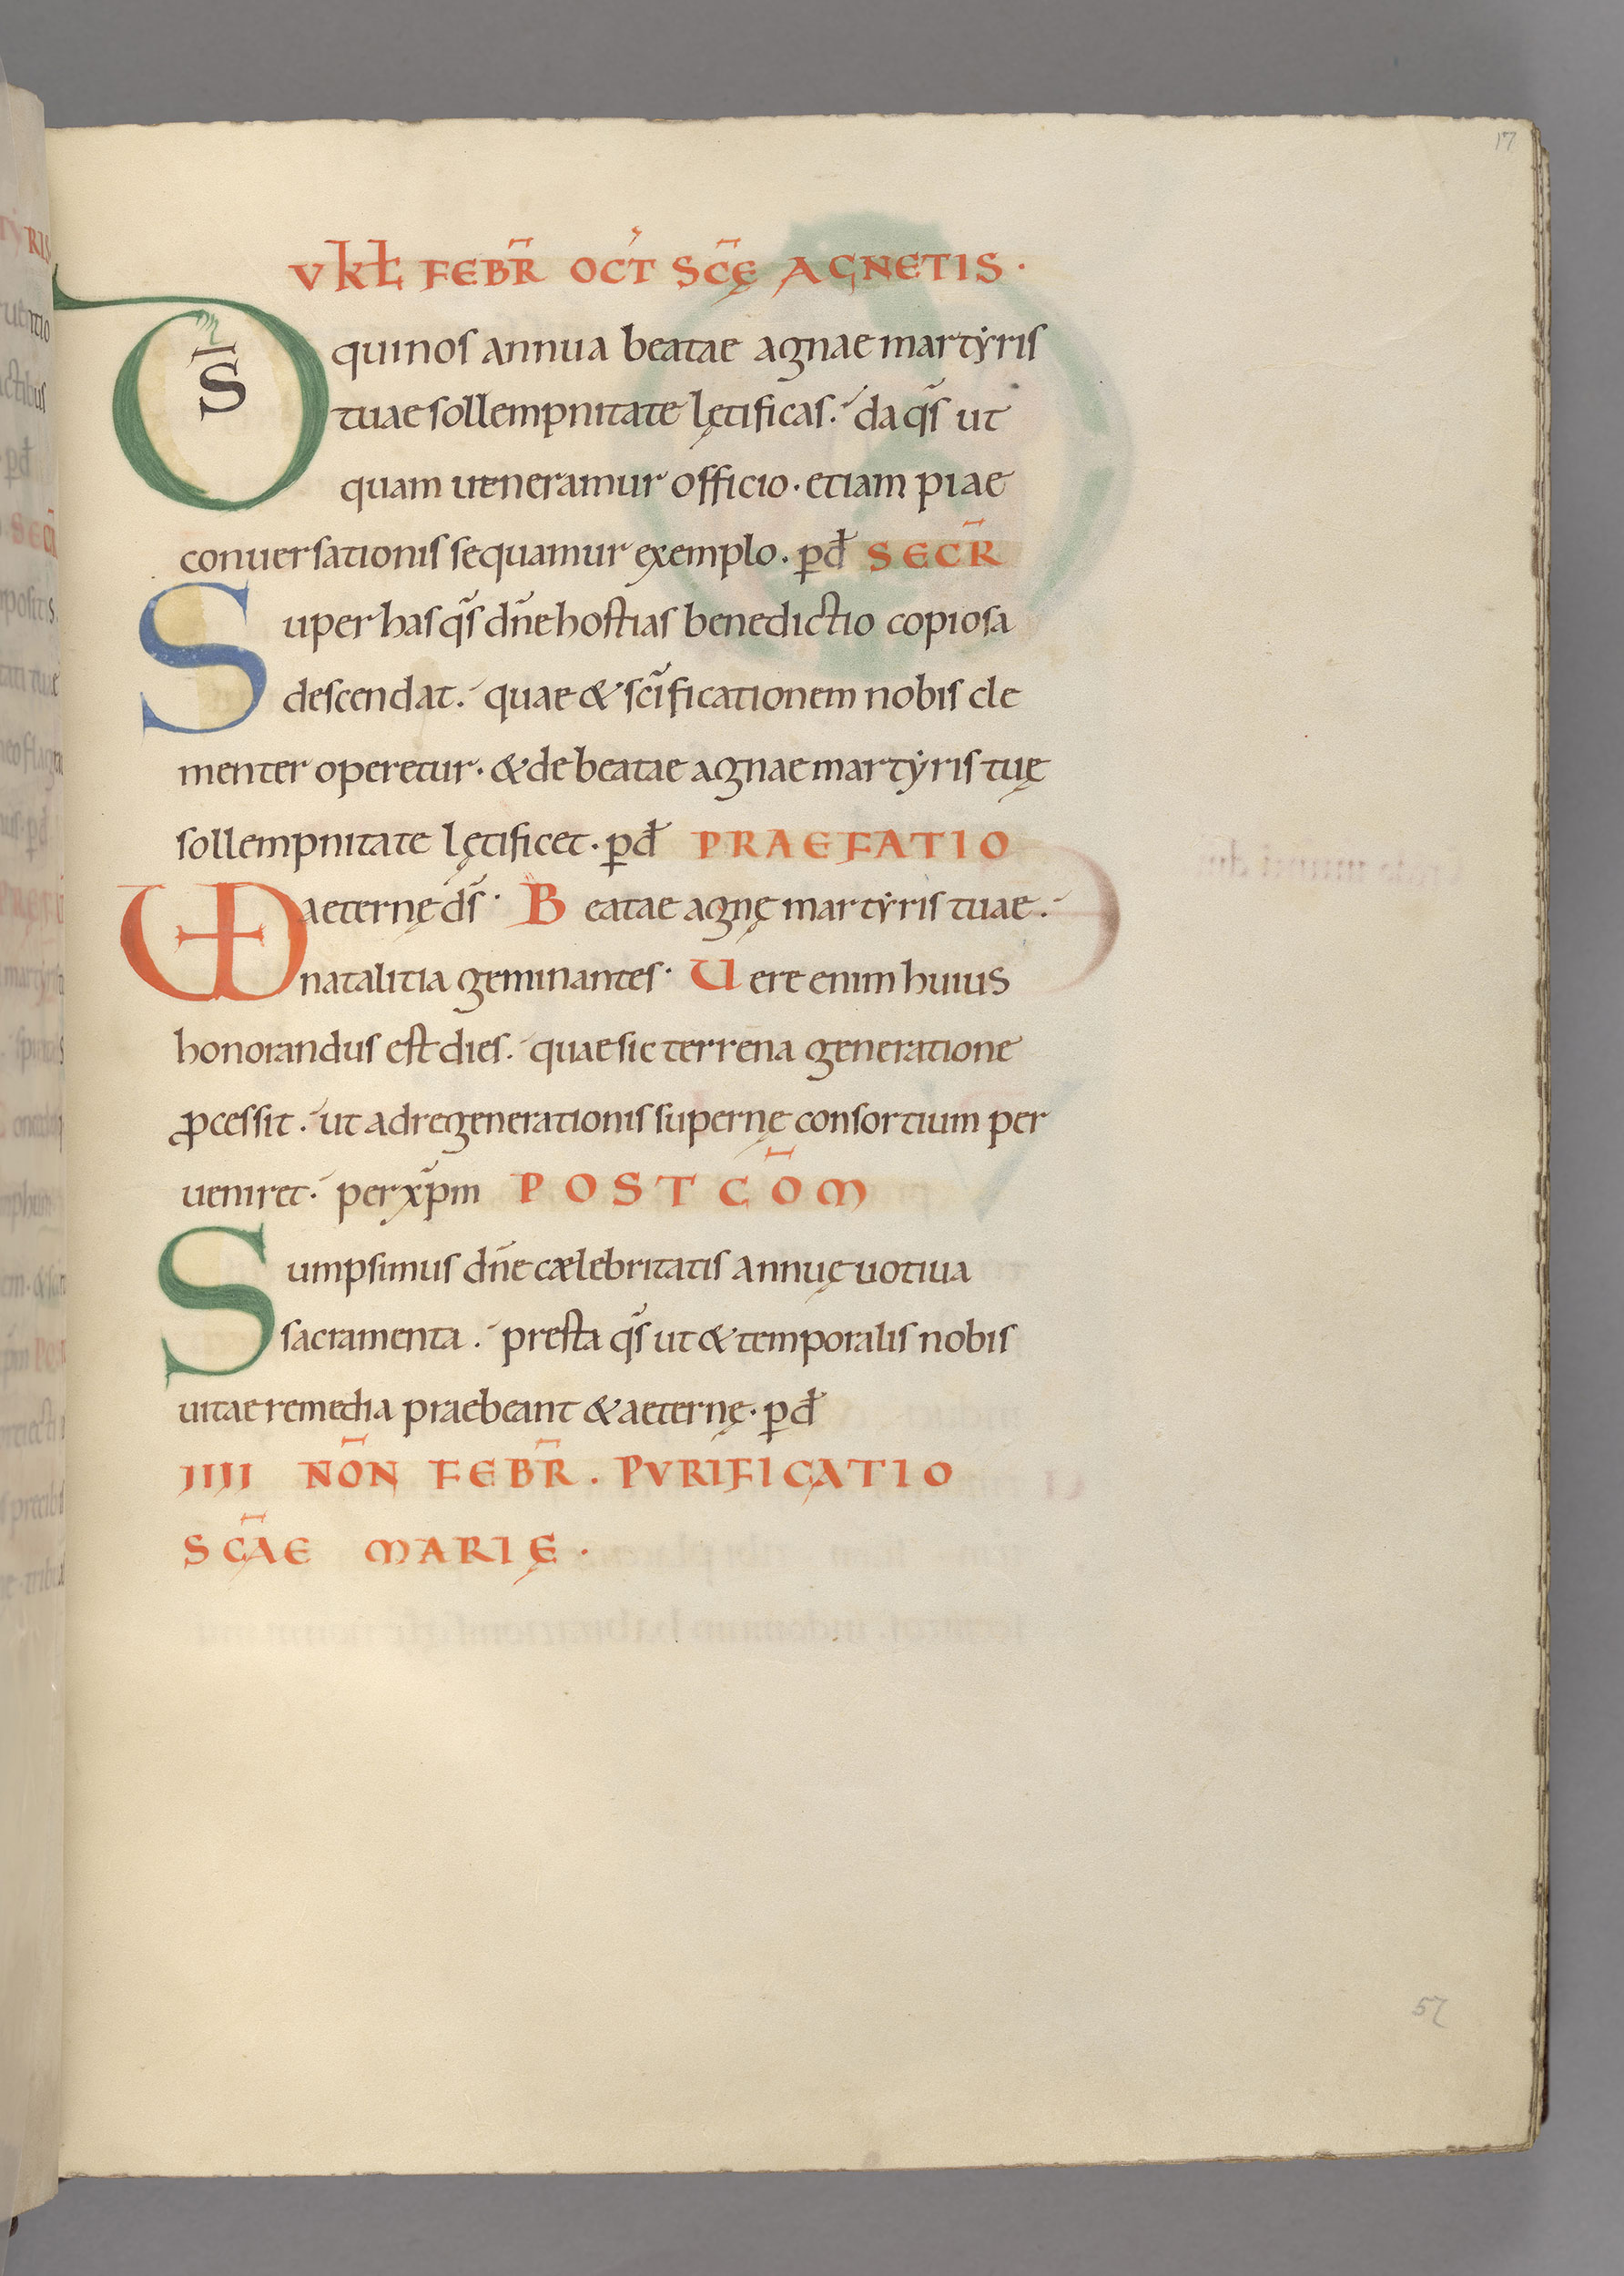 17
V kł FEBR̄ OCT̓ SC̄Ę AGNETIS ·
DS̄ qui nos annua beatae agnae martẏris
tuae sollempnitate lętificas. da qs̄ ut
quam ueneramur officio · etiam piae
conuersationis sequamur exemplo · pđ SECR̄
Super has qs̄ dn̄e hostias benedictio copiosa
descendat. quae & sc̄ificationem nobis cle
menter operetur · & de beatae agnae martẏris tuę
sollempnitate lętificet · pđ PRAEFATIO
VD aeternę ds̄ · Beatae agnę martẏris tuae .
natalitia geminantes · Uere enim huius
honorandus est dies. quae sic terrena generatione
ꝓcessit . ut ad regenerationis supernę consortium per
ueniret. per xp̄m POSTCŌM
Sumpsimus dn̄e cælebritatis annuę uotiua
sacramenta . presta qs̄ ut & temporalis nobis
uitae remedia praebeant & aeternę · pđ
IIII NŌN FEBR̄ . PVRIFICATIO
SC̄AE MARIĘ ·
57